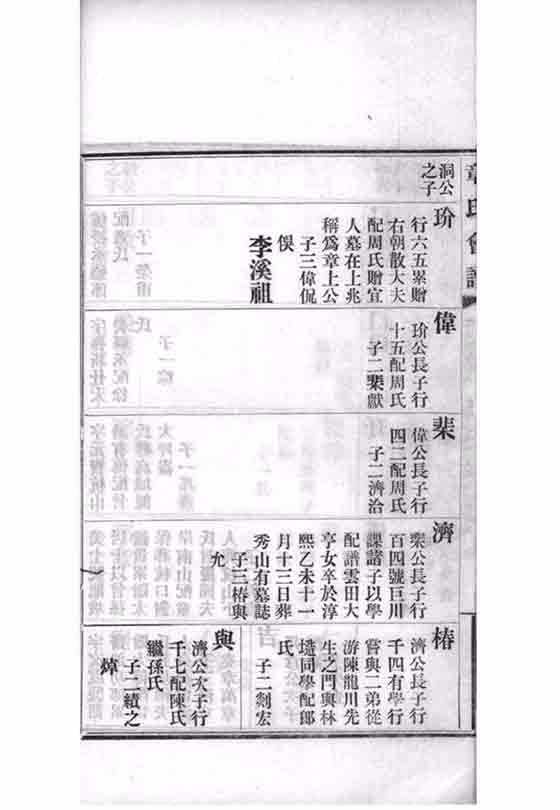 章氏會譜
洞公
之子
玠
行六五累贈
右朝散大夫
配周氏贈宜
人墓在上兆
稱爲章上公
子三偉侃
俁
李溪祖
偉
玠公長子行
十五配周氏
子二棐獻
棐
偉公長子行
四二配周氏
子二濟治
濟
棐公長子行
百四號巨川
課諸子以學
配譜雲田大
亨女卒於淳
熙乙未十一
月十三日葬
秀山有墓誌
子三椿與
允
椿
濟公長子行
千四有學行
嘗與二弟從
游陳龍川先
生之門與林
㙐同學配郎
氏
子二剡宏
與
濟公次子行
千七配陳氏
繼孫氏
子二績之
焯